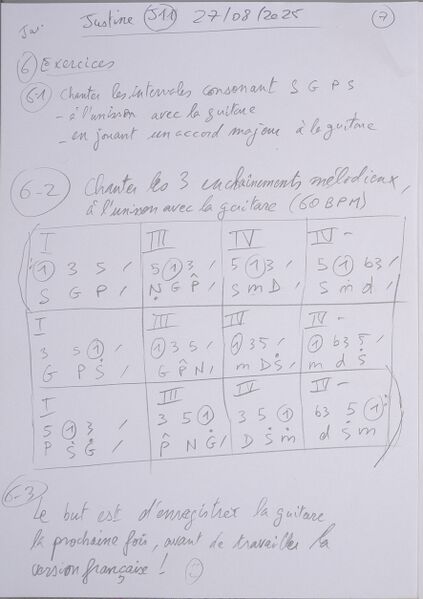 Justine J11 27/08/2025 7
6 Exercices
6-1 Chanter les intervales consonant S G P S
- à l'unisson avec la guitare
- en jouant un accord majeur à la guitare
6-2 Chanter les 3 enchaînements mélodieux,
à l'unisson avec la guitare (60 BPM)
I III IV IV -
1 3 5 / 5 1 3 / 5 1 3 / 5 1 b3 /
S G P / Ṇ G P̂ / S m D / S m d /
I III IV IV -
3 5 1 / 1 3 5 / 1 3 5 / 1 b3 5 /
G P Ṡ / G P̂ N / m D Ṡ / m d Ṡ
I III IV IV -
5 1 3 / 3 5 1 3 5 1 b3 5 1
P Ṡ Ġ / P̂ N Ġ / D Ṡ ṁ d Ṡ ṁ
6-3
Le but est d'enregistrer la guitare
la prochaine fois, avant de travailler la
version française !